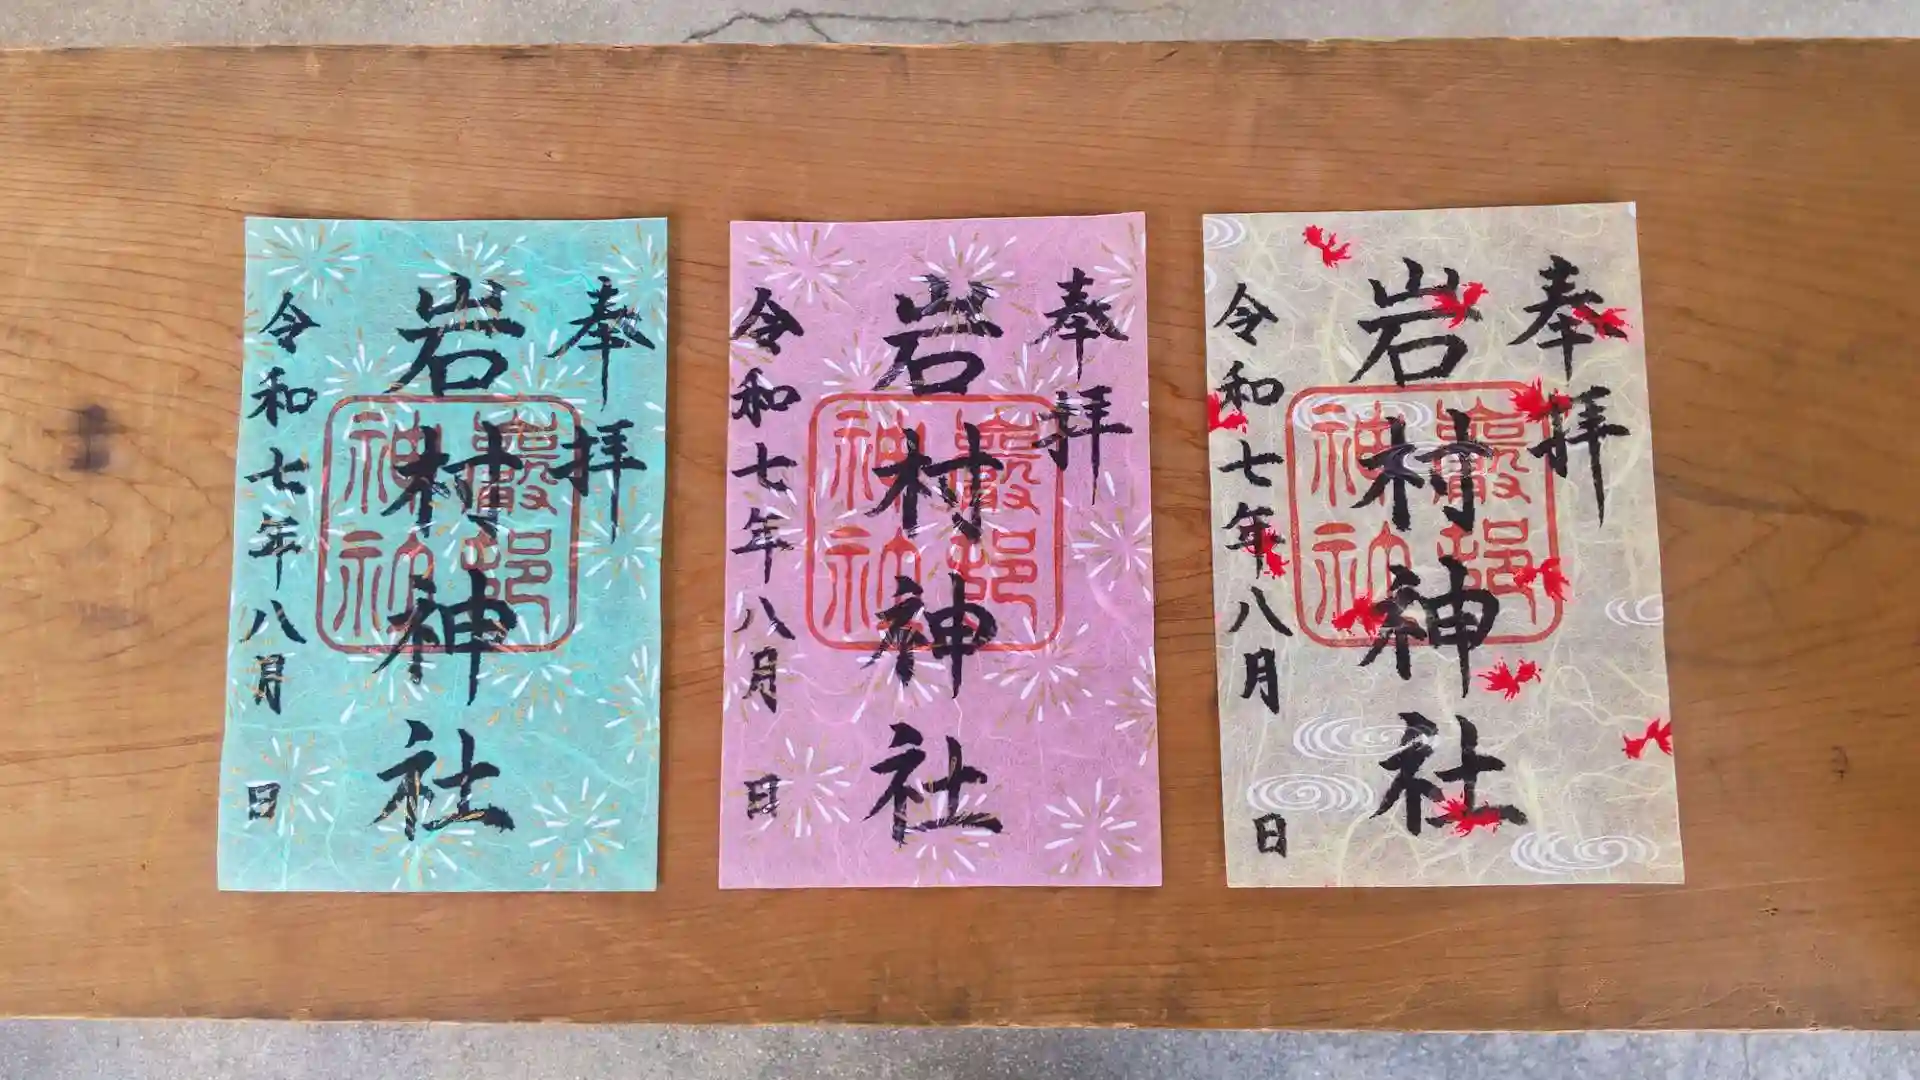 奉拝
岩村神社
令和七年八月 日
巖邨神社
奉拝
岩村神社
令和七年八月 日
巖邨神社
奉拝
岩村神社
令和七年八月 日
巖邨神社